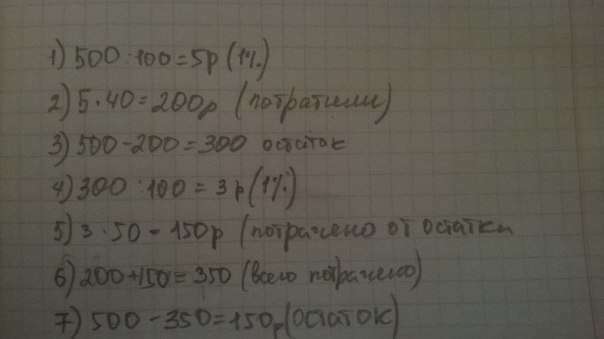 1) 500 : 100 = 5р (1%)
2) 5 · 40 = 200р (потратили)
3) 500 - 200 = 300 остаток
4) 300 : 100 = 3 р (1%)
5) 3 · 50 = 150р (потрачено от остатки
6) 200 + 150 = 350 (всего потрачено)
7) 500 - 350 = 150р (остаток)